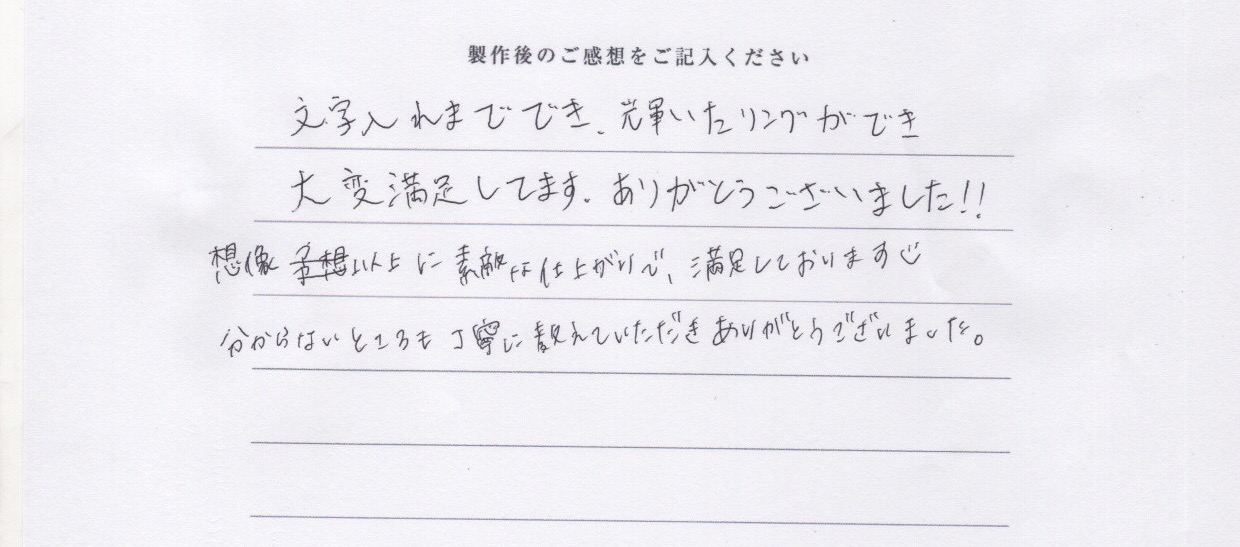 製作後のご感想をご記入ください
文字入れまででき、輝いたリングができ
大変満足してます。ありがとうございました!!
想像 予想以上に素敵な仕上がりで、満足しております
分からないところも丁寧に教えていただきありがとうございました。